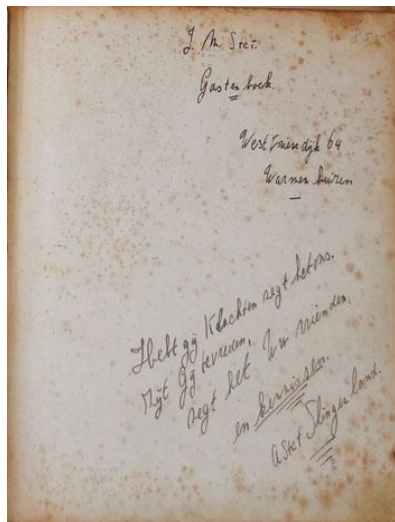 J. M. Stet.
Gastenboek
Westfriesedijk 64
Warmenhuizen
Hebt gij Klachten zegt het ons.
Zijt Gij tevreden,
zegt het Uw vrienden,
en kennissen.
A Stet Slingerland.